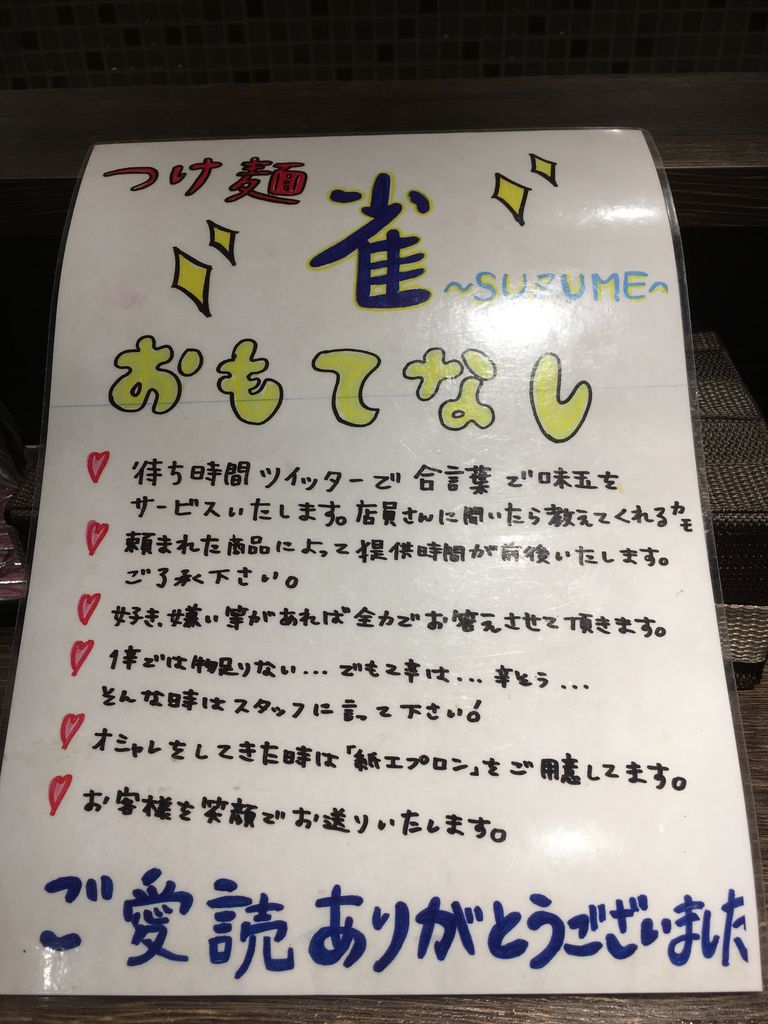 つけ麺
雀
~SUZUME~
おもてなし
待ち時間 ツイッターで 合言葉 で味玉を
サービスいたします。店員さんに聞いたら教えてくれるカモ
頼まれた商品によって提供時間が前後いたします。
ご了承下さい。
好き、嫌い等があれば全力でお答えさせて頂きます。
1辛では物足りない... でも2辛は... 辛そう...
そんな時はスタッフに言って下さい!
オシャレをしてきた時は「紙エプロン」をご用意してます。
お客様を笑顔でお送りいたします。
ご愛読ありがとうございました